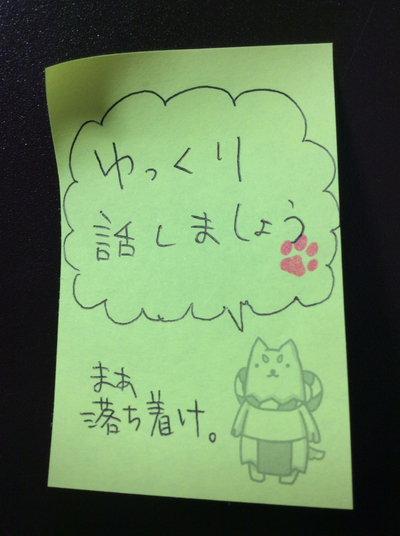 ゆっくり
話しましょう
まあ
落ち着け。